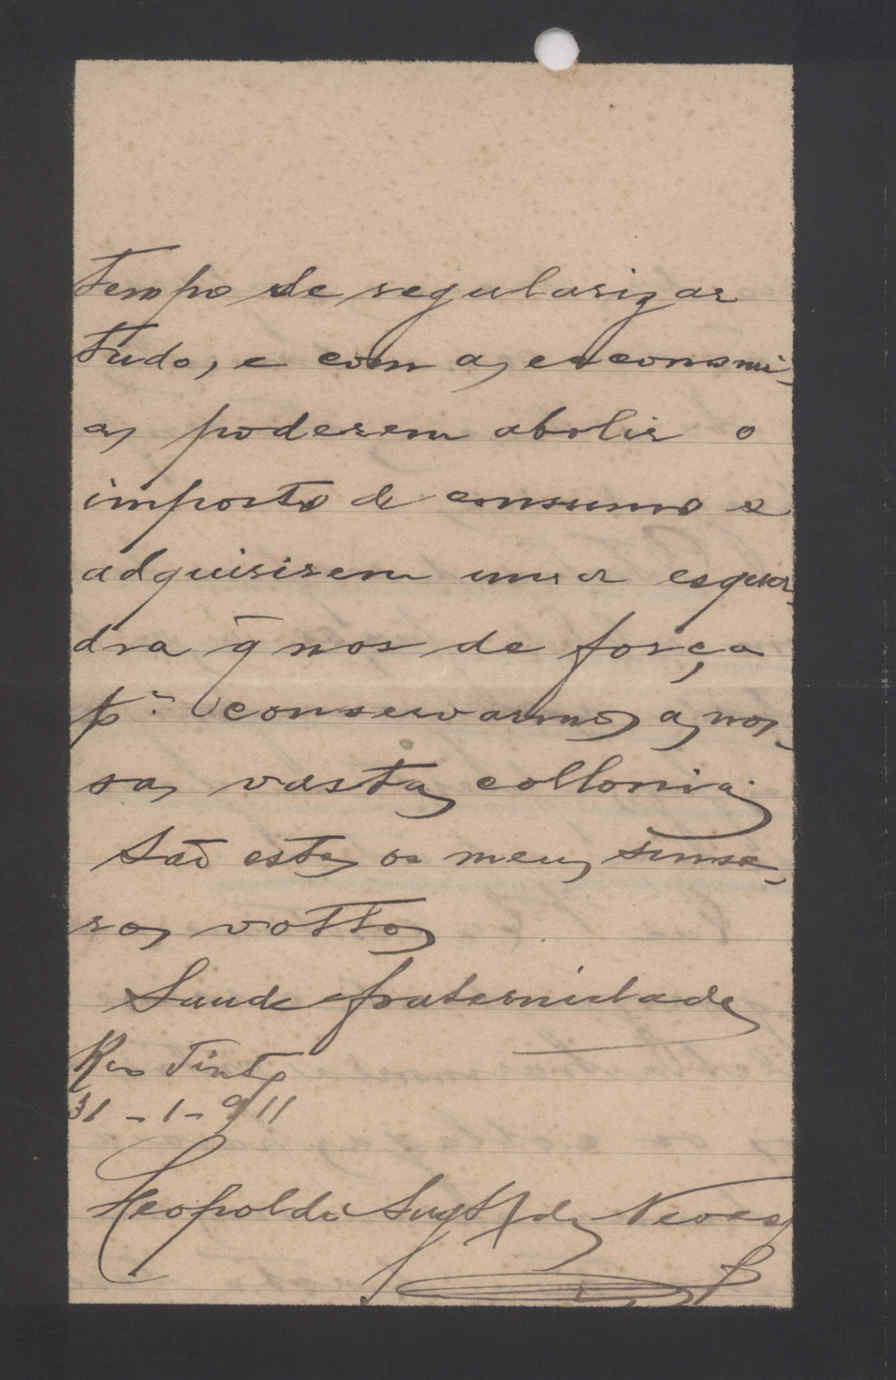 tempo de regularizar
tudo, e com as ecconomi-
as poderem abolir o
imposto de consumo e
adquirirem uma esqua-
dra q̃ nos de força
pª conservarmos as nos-
sas vastas collonias.
São estes os meus since-
ros vottos
Saude e fraternidade
Rio Tinto
31-1-911
Leopoldo das Neves